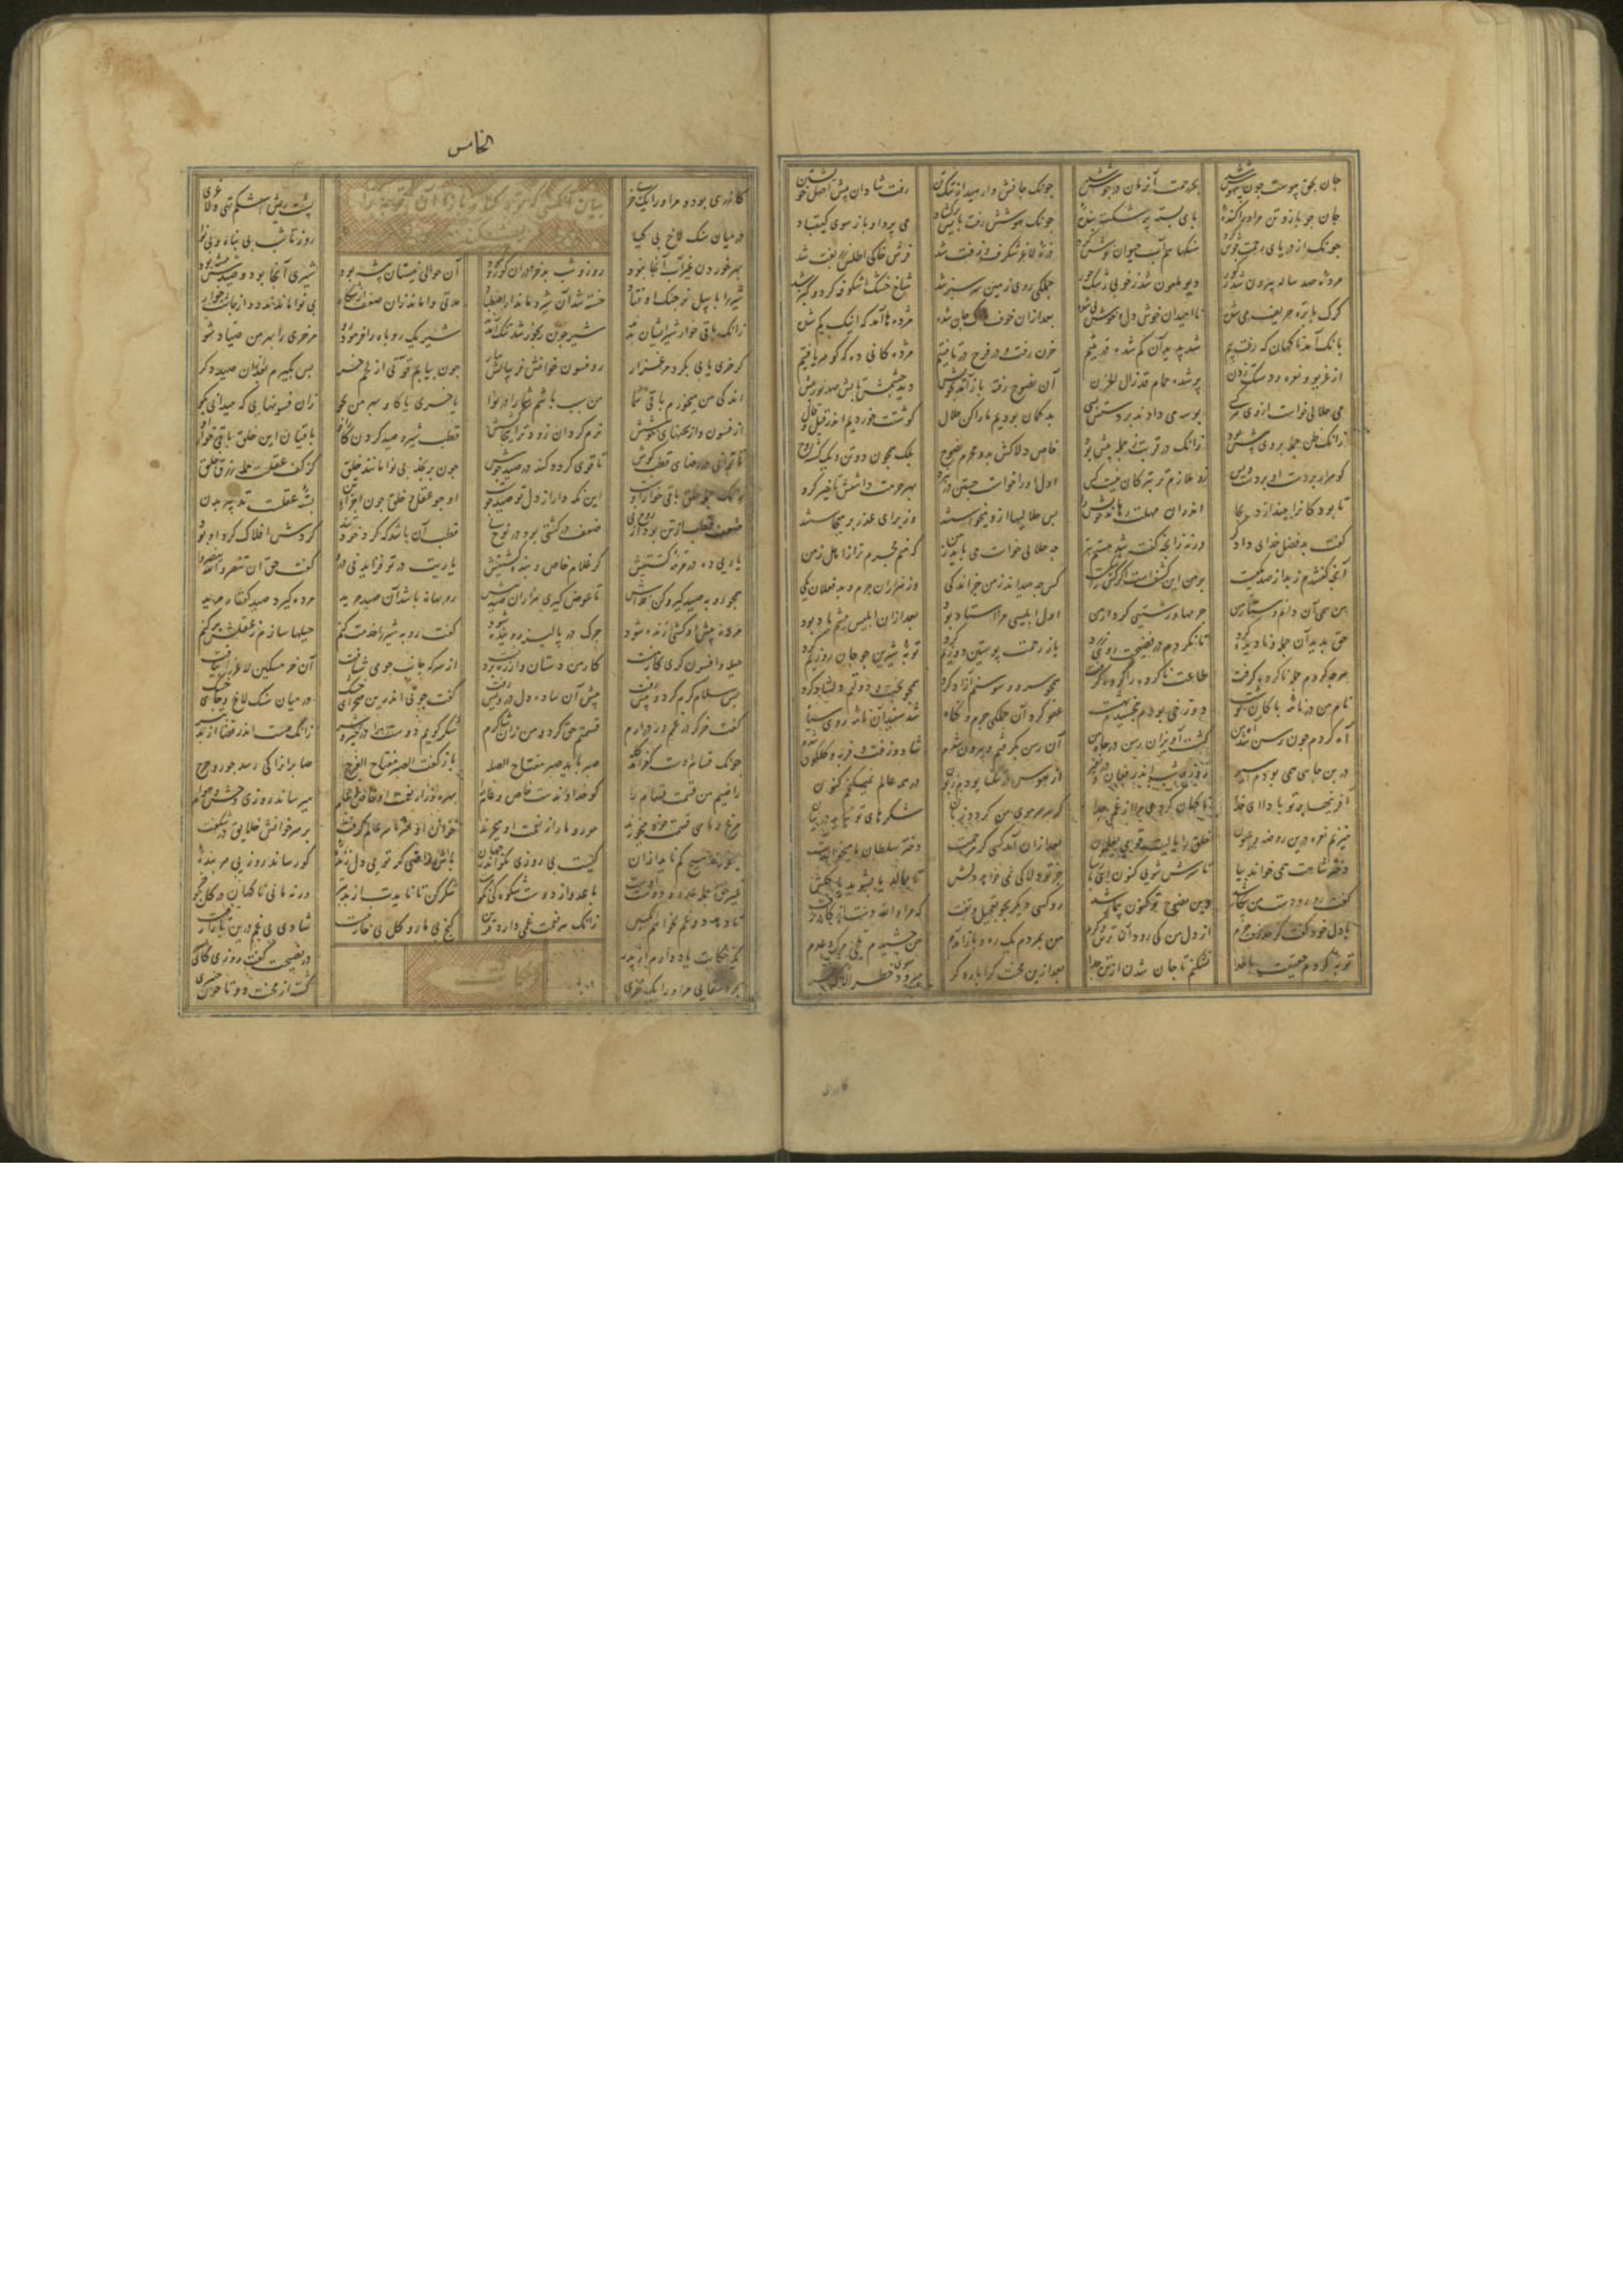 جان بحق پیوست چون بیهوش شد بحر رحمت آن زمان در جوش شد چونک جانش وارهید از ننگ تن رفت شادان پیش اصل خویشتن
جان چو باز و تن مرورا کنده پای بسته پر شکسته بنده چونک هوشش رفت پایش برگشاد می پرد آن باز سوی کیقباد
چونک دریاهای رحمت جوش کرد سنگها هم آب حیوان نوش کرد ذره لاغر شگرف و زفت شد فرش خاکی اطلس زربفت شد
مرده صد ساله بیرون شد ز گور دیو ملعون شد ز خوبی رشک حور جملگی روی زمین سرسبز شد شاخ خشک اشکوفه کرد و گبز شد
گرگ با بره حریف می شده ناامیدان خوش دل و خوش پی شده بعد ازان خوف جان شده مژده ها آمد که اینک گم شده
بانگ آمد ناگهان که رفت بیم شد پدید آن گم شده در یتیم حزن رفت و در فرح دریافتیم مژدگانی ده که گوهر یافتیم
از غریو و نعره و دستک زدن پر شده حمام قد زال الحزن آن نصوح رفته باز آمد بخویش دید چشمش تابش صد روز بیش
می حلالی خواست از وی هر کسی بوسه می دادند بر دستش بسی بد گمان بودیم ما را کن حلال گوشت خوردیم اندر قیل و قال
زانک ظن جمله بر وی بیش بود زانک در قربت ز جمله پیش بود خاص دلاکش بد و محرم نصوح بلک همچون دو تن و یک گشته روح
گوهر ار بردست او بردست و بس زو ملازم تر بترکان نیست کس اول او را خواست جستن در نبرد بهر حرمت داشتش تاخیر کرد
تا بود کانرا بیندازد بجا اندران مهلت رهاند خویش را بس حلالیها ازو میخواستند وز برای عذر بر میخاستند
گفت بد فضل خدای دادگر ورنه زانچ گفته شد هستم بتر چه حلالی خواست می باید ز من که منم مجرم تر از اهل زمن
آنچ گفتندم ز بد از صد یکیست بر من این کشفست ار کس را شکیست کس چه میداند ز من جز اندکی وز هزاران جرم و بد فعلان یکی
من همی آن دانم و ستار من جرمها و زشتی کردار من اول ابلیسی مرا استاد بود بعد ازان ابلیس پیشم باد بود
حق بدید آن جمله و نادیده کرد تا نگردم در فضیحت روی زرد باز رحمت پوستین دوزیم کرد توبه شیرین چو جان روزیم کرد
هرچه کردم جمله ناکرده گرفت طاعت ناکرده آورده گرفت همچو سرو و سوسنم آزاد کرد همچو بخت و دولتم دلشاد کرد
نام من در نامه پاکان نوشت دوزخی بودم ببخشیدم بهشت عفو کرد آن جملگی جرم و گناه شد سپید آن نامه روی سیاه
آه کردم چون رسن شد آه من گشت آویزان رسن در چاه من آن رسن بگرفتم و بیرون شدم شاد و زفت و فربه و گلگون شدم
در بن چاهی همی بودم اسیر روز و شب اندر فغان و در نفیر از هوس در تنگنا بودم زبون در همه عالم نمیگنجم کنون
آفرینها بر تو بادا ای خدا ناگهان کردی مرا از غم جدا گر سر هر موی من گردد زبان شکرهای تو نیاید در بیان
میزنم نعره درین روضه و عیون خلق را یا لیت قومی یعلمون بعد ازان آمد کسی کز مرحمت دختر سلطان ما میخواندت
دختر شاهت همی خواند بیا تا سرش شویی کنون ای پارسا جز تو دلاکی نمی خواهد دلش تا بمالد یا بشوید با گلش
گفت رو رو دست من بی کار شد وین نصوح تو کنون بیمار شد رو کسی دیگر بجو بتعجیل و تفت که مرا والله دست از کار رفت
با دل خود گفت کز حد رفت جرم از دل من کی رود آن ترس و گرم من بمردم یک ره و باز آمدم من چشیدم تلخی مرگ و عدم
توبه کردم حقیقت با خدا نشکنم تا جان شدن از تن جدا بعد ازین محنت کرا بار دگر رود سوی خطر الا که خر
الخامس
بیان آنکسی که توبه کند و باز آن توبه را
بشکند
گازری بود و مر او را یک خری پشت ریش اشکم تهی و لاغری
در میان سنگ لاخ بی گیا روز تا شب بی پناه و بی نوا
بهر خوردن غیر آب آنجا نبود روز و شب بد خر دران کور و کبود آن حوالی نیستان بیشه بود شیری آنجا بود و صیدش پیشه بود
شیر را با پیل نر جنگ اوفتاد خسته شد آن شیر و ماند از اصطیاد مدتی وا ماند زان ضعف از شکار بی نوا ماندند دد از چاشت خوار
زانک باقی خوار شیر ایشان بدند شیر چون رنجور شد تنگ آمدند شیر یک روباه را فرمود رو مر خری را بهر من صیاد شو
گر خری یابی بگرد مرغزار رو فسون خوانش فریبانش بیار چون بیابم قوتی از لحم خر پس بگیرم بعد ازان صیدی دگر
اندکی من میخورم باقی شما من سبب باشم شما را در نوا یا خری یا گاو بهر من بجو زان فسونهایی که میدانی بگو
از فسون و از سخنهای خوشش نرم گردان زودتر اینجا کشش قطب شیر و صید کردن کار او باقیان این خلق باقی خوار او
تا توانی در رضای قطب کوش تا قوی گردد کند در صید جوش چون برنجد بی نوا مانند خلق کز کف عقلست جمله رزق حلق
زانک جمله خلق باقی خوار اوست این نگه دار ار دل تو صید جوست او چو عقل و خلق چون اجزای تن بسته عقلست تدبیر بدن
ضعف قطب از تن بود از روح نی ضعف در کشتی بود در نوح نی قطب آن باشد که گرد خود تند گردش افلاک گرد او بود
یاریی ده در مرمه کشتیش گر غلام خاص و بنده گشتیش یاریت در تو فزاید نی درو گفت حق ان تنصروا الله
همچو روبه صید گیر و کن فداش تا عوض گیری هزاران صید بیش روبهانه باشد آن صید مرید مرده گیرد صید کفتار مرید
مرده پیش او کشی زنده شود چرک در پالیز روینده شود گفت روبه شیر را خدمت کنم حیلها سازم ز عقلش بر کنم
حیله و افسون گری کار منست کار من دستان و از ره بردنست از سر که جانب جو می شتافت آن خر مسکین لاغر را بیافت
پس سلام گرم کرد و پیش رفت پیش آن ساده دل درویش رفت گفت چونی اندرین صحرای خشک در میان سنگ لاخ و جای خشک
گفت خر گر در غمم ور در ارم قسمتم حق کرد و من زان شاکرم شکر گویم دوست را در خیر و شر زانک هست اندر قضا از بد بتر
چونک قسام اوست کفر آمد گله صبر باید صبر مفتاح الصله باز گفت الصبر مفتاح الفرج صابرانرا کی رسد جور و حرج
راضیم من قسمت قسام را کو خداوندست خاص و عام را بهره ور از نعمت او خاص و عام میرساند روزی وحش و هوام
مرغ و ماهی قسمت خود میخورند مور و مار از نعمت او میچرند خوان او سرتاسر عالم گرفت بر سر خوانش خلایق در شگفت
میخورند هیچ کم ناید ازان کیست بی روزی بگو اندر جهان باش راضی گر تویی دل زنده کو رساند روزیی هر بنده
غیر حق جمله عدو و دوست اوست با عدو از دوست شکوه کی نکوست شکر کن تا نایدت از بد بتر ورنه مانی ناگهان در گل چو خر
تا دهد دوغم نخواهم انگبین زانک هر نعمت غمی دارد قرین گنج بی مار و گل بی خار نیست شادی بی غم درین بازار نیست
یک حکایت یاد دارم از پدر در نصیحت گفت روزی کای پسر
حکایت
بود سقایی مر او را یک خری گشته از محنت دو تا چون چنبری